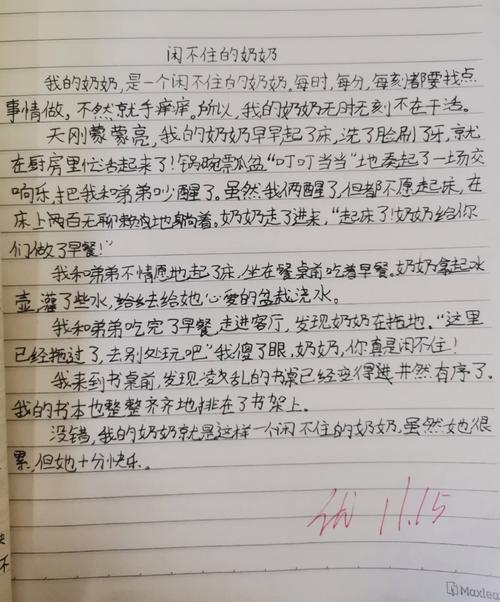 闲不住的奶奶
我的奶奶,是一个闲不住的奶奶。每时,每分,每刻都要找点
事情做,不然就手痒痒。所以,我的奶奶无时无刻不在干活。
天刚蒙蒙亮,我的奶奶早早起了床,洗了脸刷了牙,就
在厨房里忙活起来了!锅碗瓢盆“叮叮当当”地奏起了一场交
响乐,把我和弟弟吵醒了。虽然我俩醒了,但都不原起床,在
床上两百无聊赖地躺着。奶奶走了进来,“起床了!奶奶给你
们做了早餐!”
我和弟弟不情愿地起了床,坐在餐桌前吃着早餐。奶奶拿起水
壶,灌了些水,给去给她心爱的盆栽浇水。
我和弟弟吃完了早餐,走进客厅,发现奶奶在拖地。“这里
已经拖过了,去别处玩吧”我傻了眼,奶奶,你真是闲不住!
我来到书桌前,发现凌乱的书桌已经变得进井然有序了。
我的书本也整整齐齐地排在了书架上。
没错,我的奶奶就是这样一个闲不住的奶奶,虽然她很
累,但她十分快乐。
优 11.15
不
Maxlea